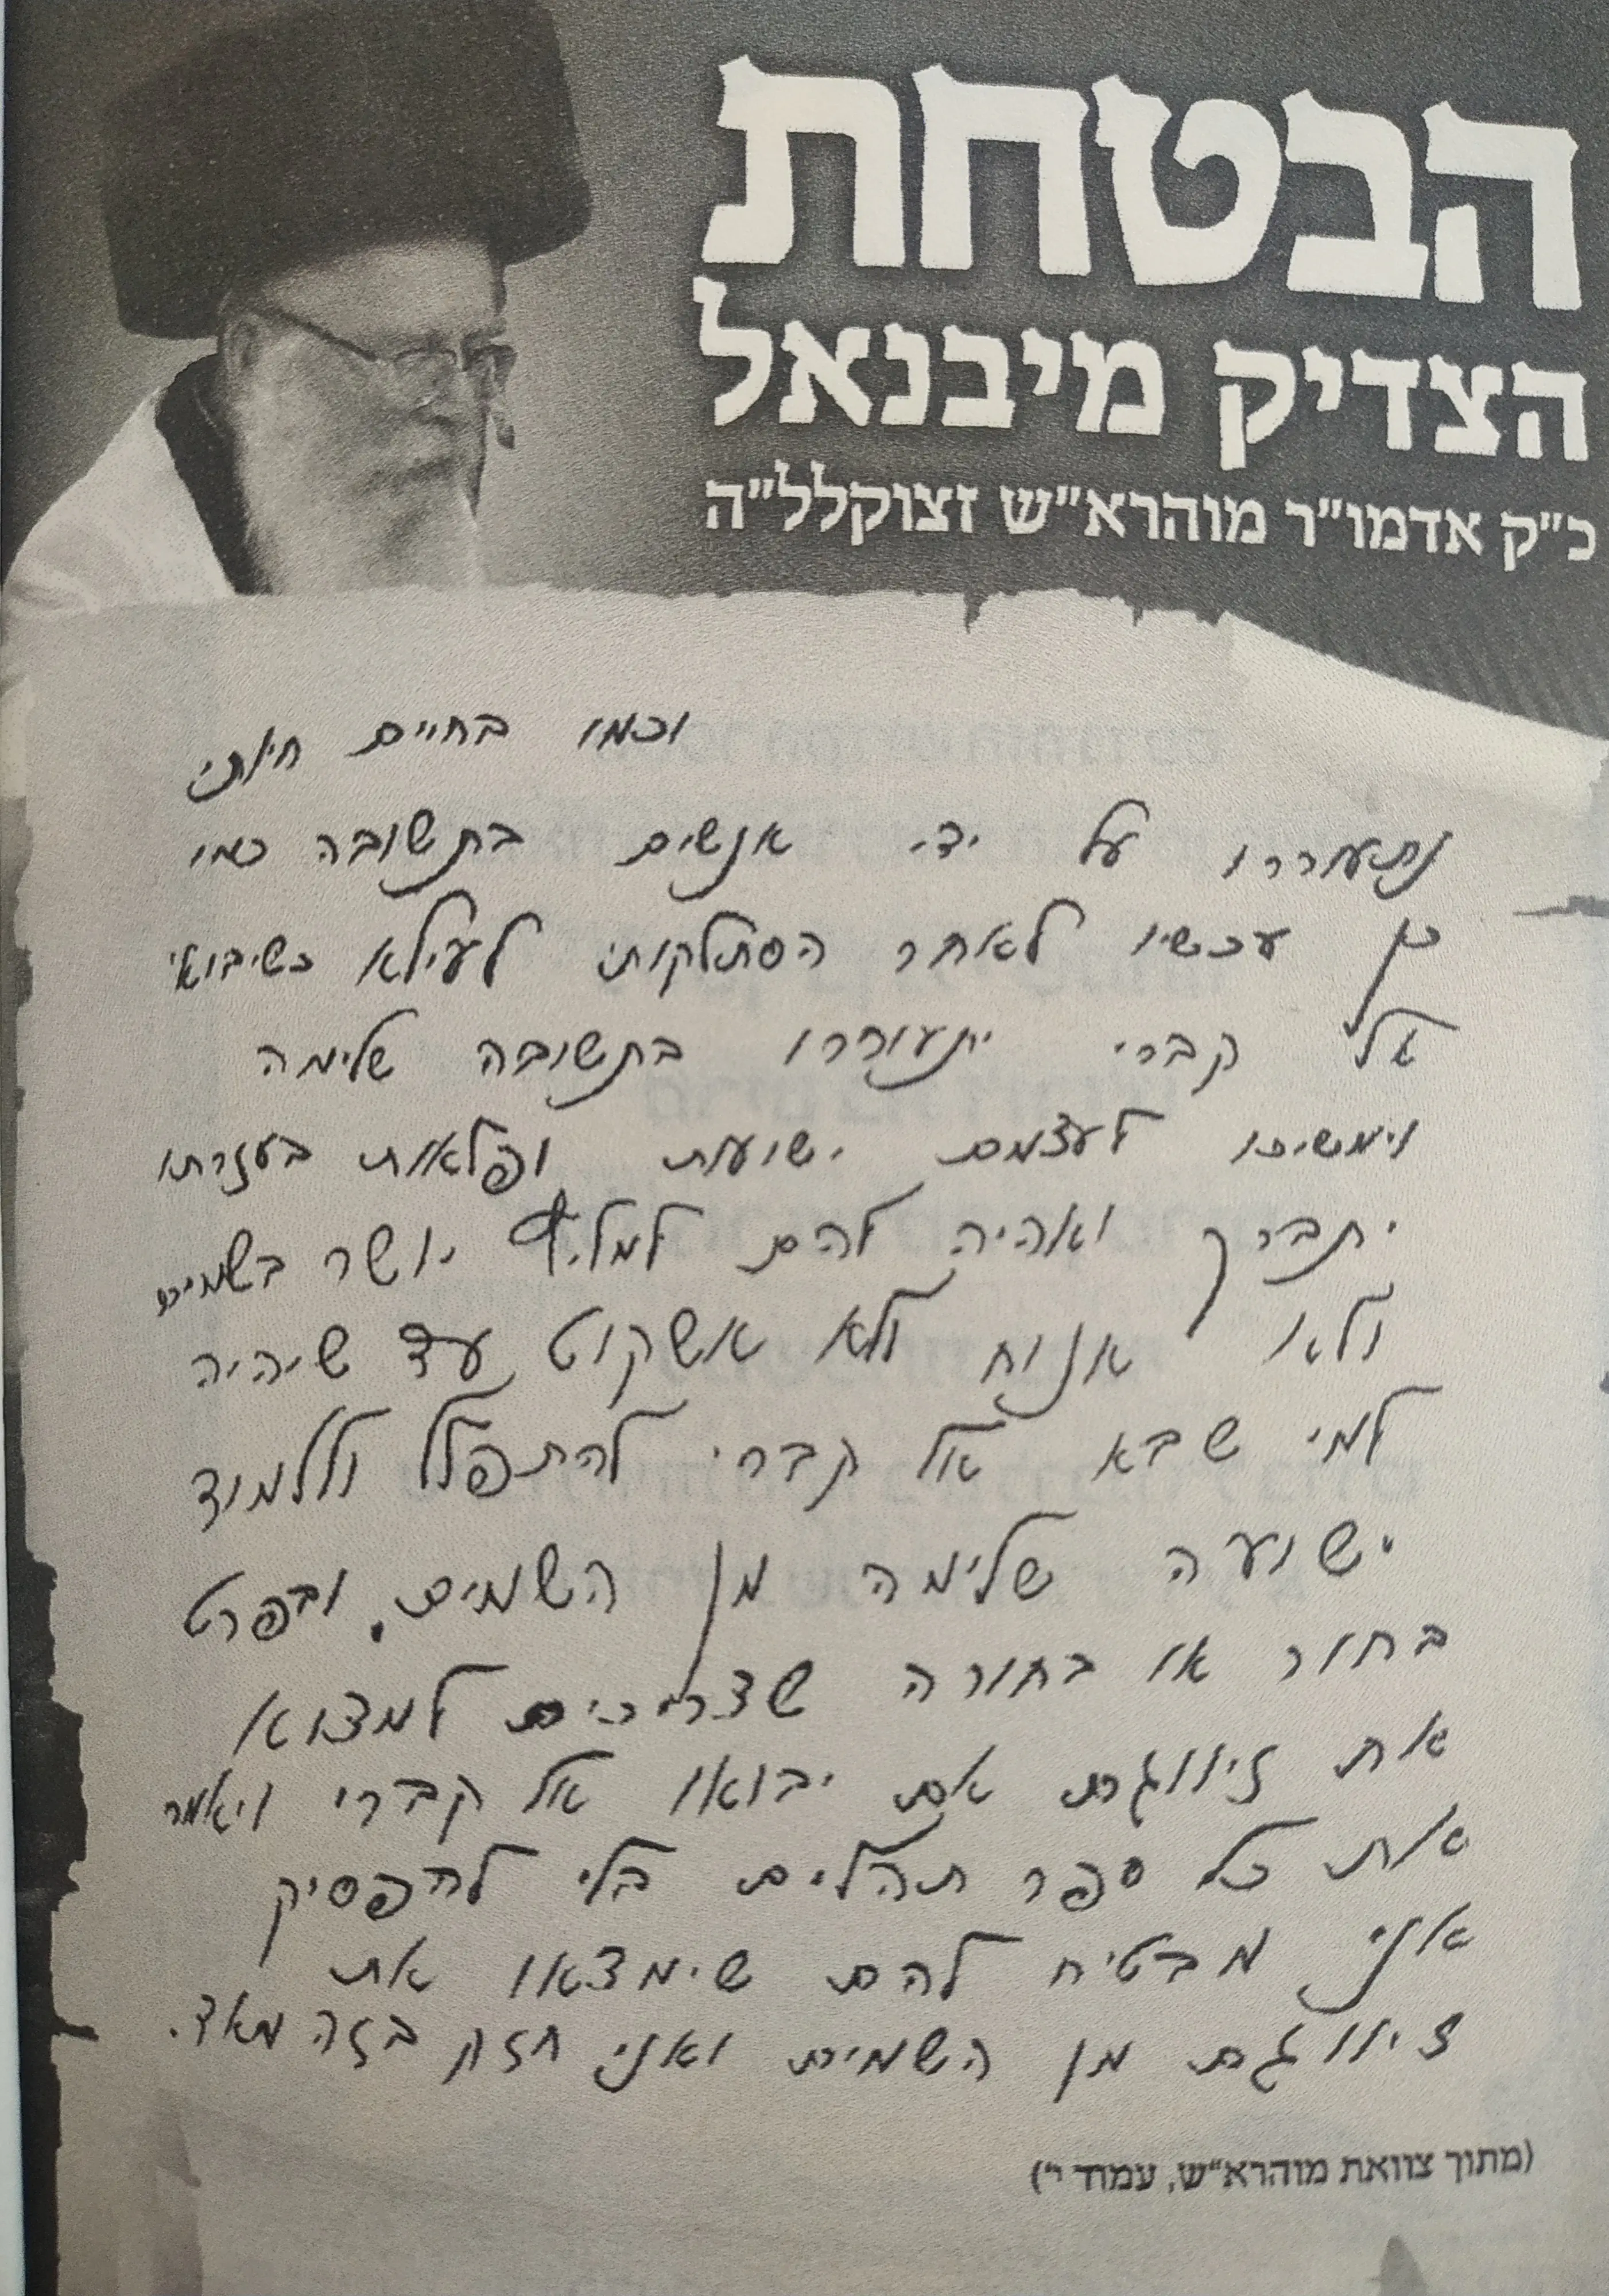 הבטחת
הצדיק מיבנאל
כ"ק אדמו"ר מוהרא"ש זצוקלל"ה
וכמו בחיים חיותי
נתעוררו על ידי אנשים בתשובה כמו
כן עכשיו לאחר הסתלקותי לעילא כשיבואו
אל קברי יתעוררו בתשובה שלימה
וימשיכו לעצמם ישועות ופלאות בעזרתו
יתברך ואהיה להם למליץ יושר בשמים
ולא אנוח ולא אשקוט עד שיהיה
למי שבא אל קברי להתפלל וללמוד
ישועה שלימה מן השמים. ובפרט
בחור או בחורה שצריכים למצוא
את זיווגם אם יבואו אל קברי ויאמרו
את כל ספר תהלים בלי להפסיק
אני מבטיח להם שימצאו את
זיווגם מן השמים ואני חזק בזה מאד.
(מתוך צוואת מוהרא"ש, עמוד י')